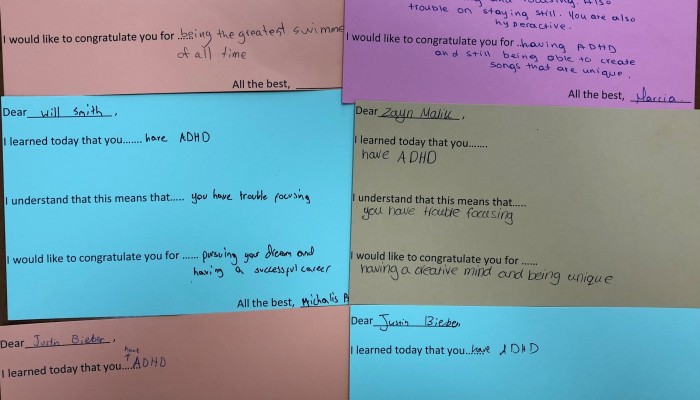 I would like to congratulate you for ..being the greatest swimme
of all time
All the best,
trouble on staying still. You are also
hyperactive.
I would like to congratulate you for ..having ADHD
and still being able to create
songs that are unique.
All the best, Marcia
Dear Will Smith,
I learned today that you....... have ADHD
I understand that this means that..... you have trouble focusing
I would like to congratulate you for ...... pursuing your dream and
having a successful career
All the best, Michalis
Dear Zayn Malik,
I learned today that you.......
have ADHD
I understand that this means that.....
you have trouble focusing
I would like to congratulate you for ......
having a creative mind and being unique
Dear Justin Bieber,
have
I learned today that you....ADHD
Dear Justin Bieber
I learned today that you..have ADHD